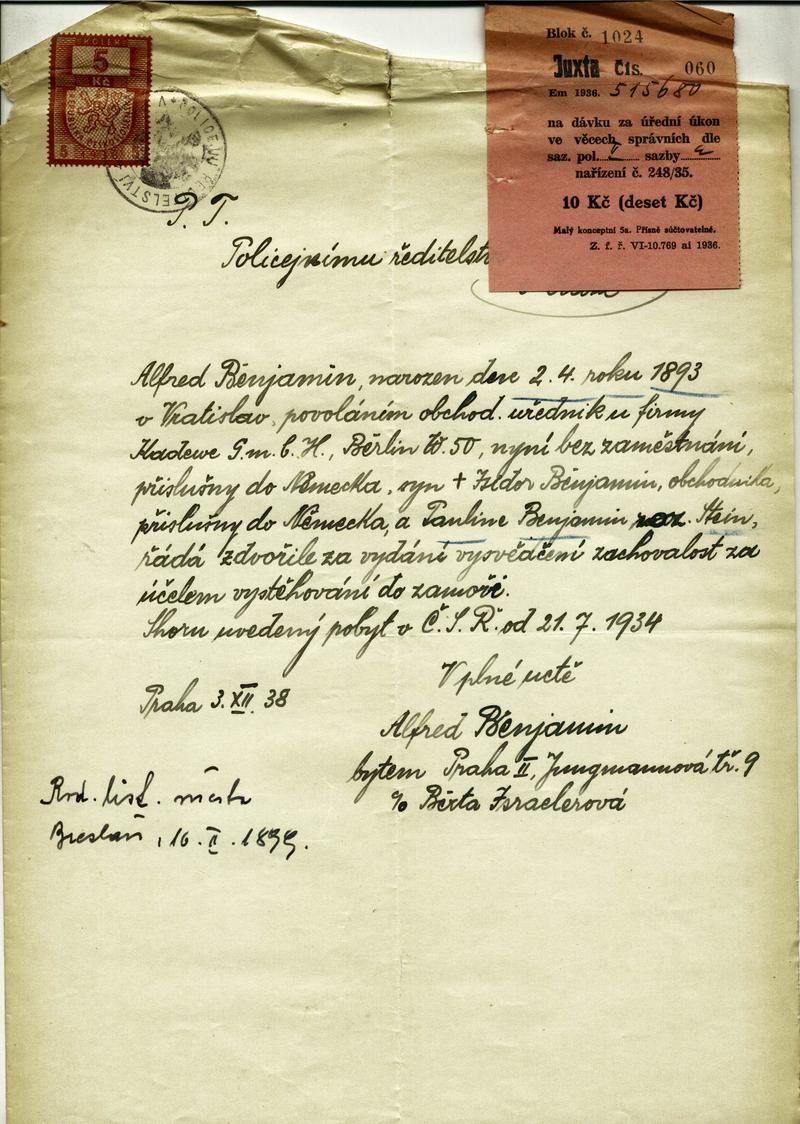 KOLEK
5
Kč
Blok č. 1024
Juxta čís. 060
Em 1936. 515680
na dávku za úřední úkon
ve věcech správních dle
saz. pol. sazby
nařízení č. 248/35.
10 Kč (deset Kč)
Malý konceptní 5a. Přísně súčtovatelné.
Z. f. ř. VI-10.769 ai 1936.
P. T.
Policejnímu ředitelst
Alfred Benjamin, narozen dne 2. 4. roku 1893
v Vratislav, povoláním obchod. uředník u firmy
Kadewe G.m.b.H., Berlin W.50, nyní bez zaměstnání,
příslušny do Německa, syn + Isidor Benjamin, obchodníka,
příslušny do Německa, a Pauline Benjamin roz. Stein,
řádá zdvořile za vydání vysvědčení zachovalost za
účelem vystěhování do zamoří.
Shoru uvedený pobyt v Č.S.R. od 21. 7. 1934
V plné uctě
Praha 3. XII. 38
Alfred Benjamin
bytem Praha II, Jungmannová tř. 9
c/o Berta Israelerová
Rod. list. města
Breslau, 16. II. 1899.